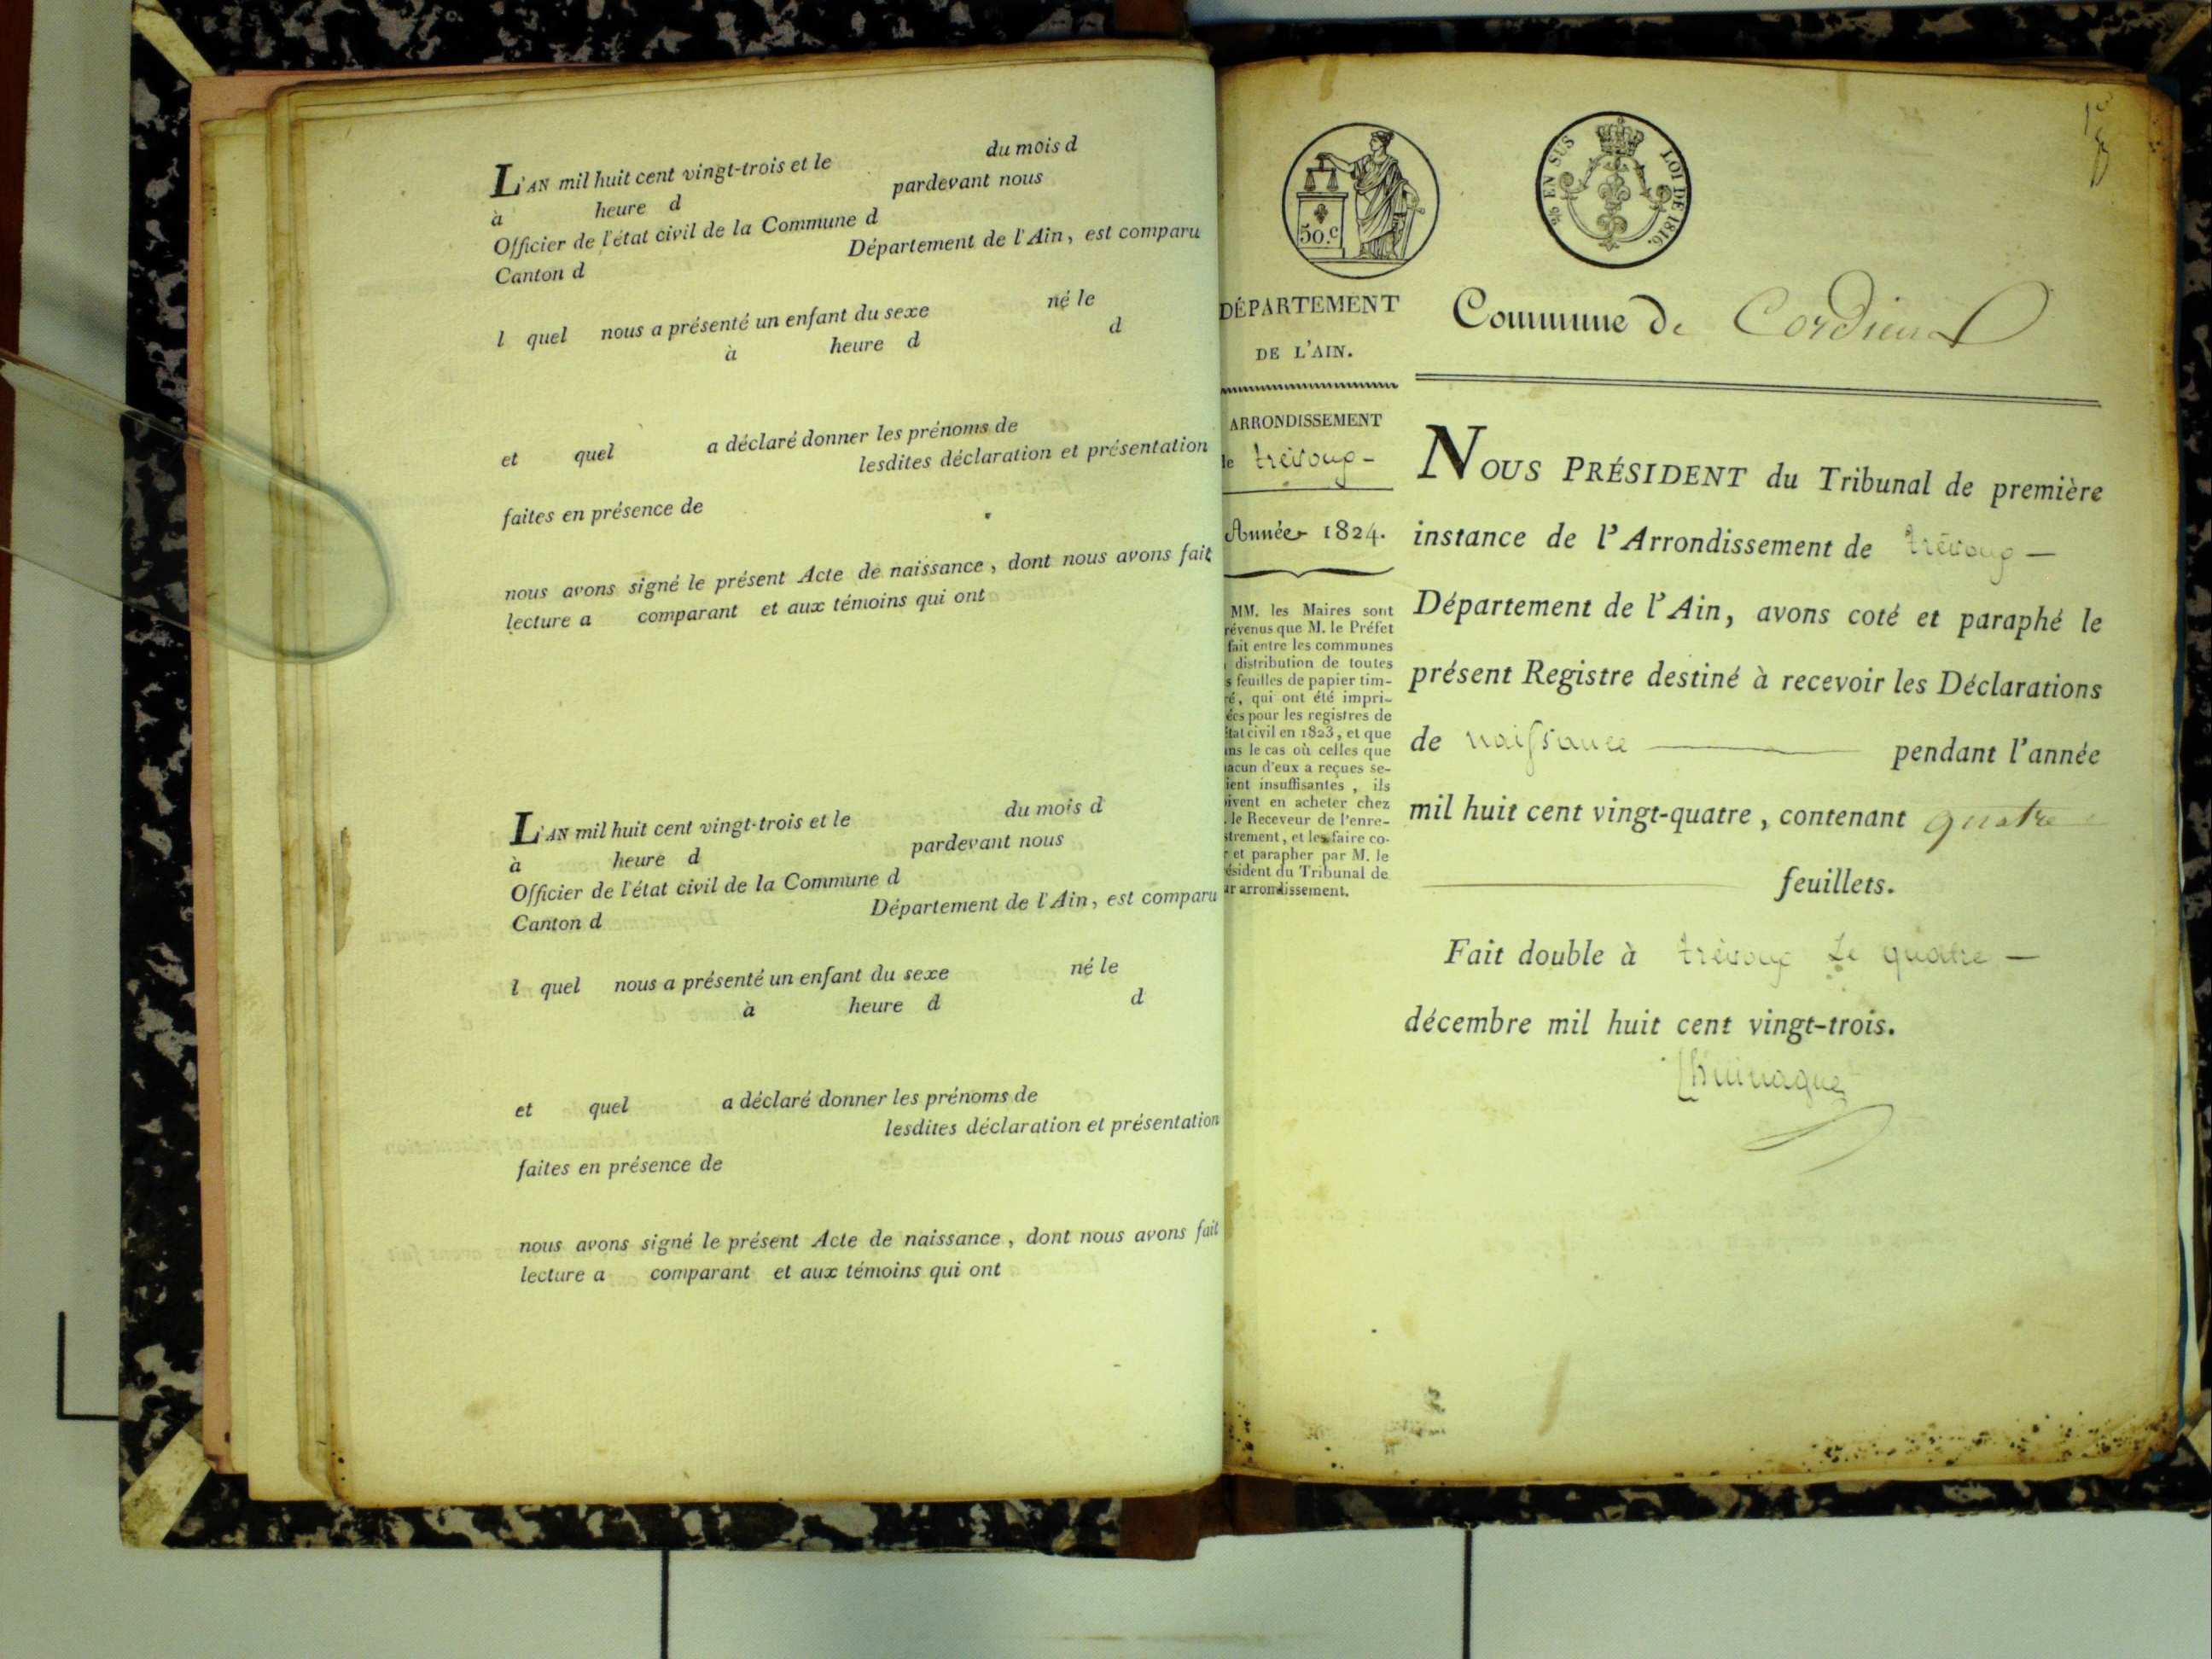 L'AN mil huit cent vingt-trois et le du mois d
à heure d pardevant nous
Officier de l'état civil de la Commune d
Canton d Département de l'Ain, est comparu
l quel nous a présenté un enfant du sexe né le
à heure d d
et quel a déclaré donner les prénoms de
lesdites déclaration et présentation
faites en présence de
nous avons signé le présent Acte de naissance, dont nous avons fait
lecture a comparant et aux témoins qui ont
L'AN mil huit cent vingt-trois et le du mois d
à heure d pardevant nous
Officier de l'état civil de la Commune d
Canton d Département de l'Ain, est comparu
l quel nous a présenté un enfant du sexe né le
à heure d d
et quel a déclaré donner les prénoms de
lesdites déclaration et présentation
faites en présence de
nous avons signé le présent Acte de naissance, dont nous avons fait
lecture a comparant et aux témoins qui ont
50.c
EN SUS LOI DE 1816.
DÉPARTEMENT
DE L'AIN.
ARRONDISSEMENT
de trévoux -
Année 1824.
MM. les Maires sont
révenus que M. le Préfet
fait entre les communes
distribution de toutes
s feuilles de papier tim-
ré, qui ont été impri-
ées pour les registres de
état civil en 1823, et que
ns le cas où celles que
acun d'eux a reçues se-
ient insuffisantes, ils
ivent en acheter chez
. le Receveur de l'enre-
strement, et les faire co-
r et parapher par M. le
ésident du Tribunal de
ur arrondissement.
Commune de Cordieux
NOUS PRÉSIDENT du Tribunal de première
instance de l'Arrondissement de trévoux —
Département de l'Ain, avons coté et paraphé le
présent Registre destiné à recevoir les Déclarations
de naissance pendant l'année
mil huit cent vingt-quatre, contenant quatre
feuillets.
Fait double à trévoux Le quatre —
décembre mil huit cent vingt-trois.